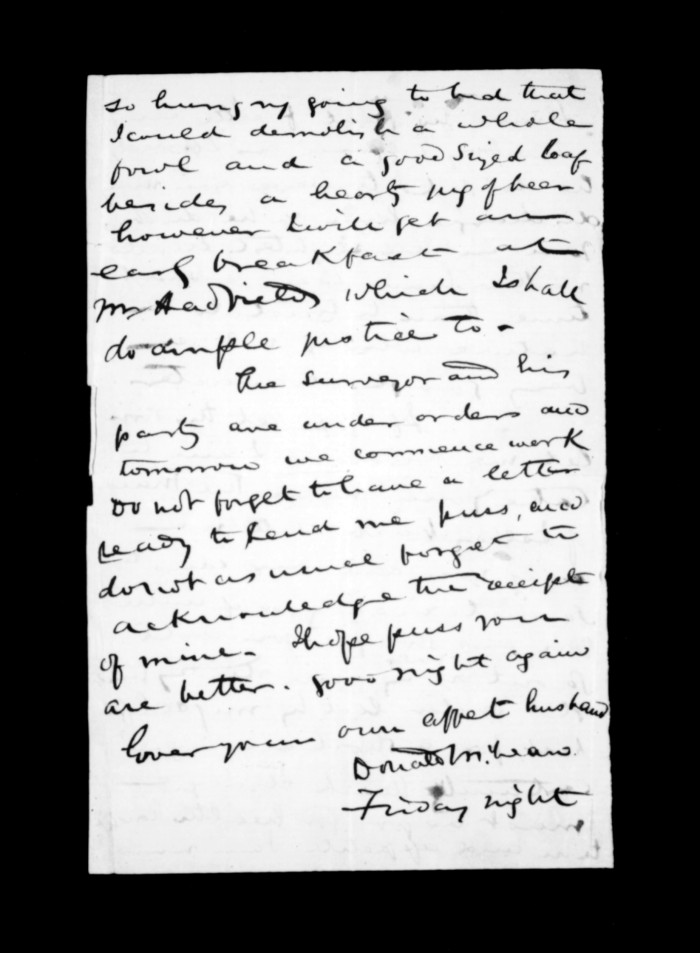 so hungry going to bed that
I could demolish a whole
fowl and a good sized loaf
besides a hearty jug of beer
however I will get an
early breakfast at
Mrs Hadfields which I shall
do ample justice to -
The surveyor and his
party are under orders and
tomorrow we commence work
Do not forget to have a letter
ready to send me puss, and
do not as usual forget to
acknowledge the receipt
of mine - I hope puss you
are better. good night again
lover your own affet husband
Donald McLean
Friday night